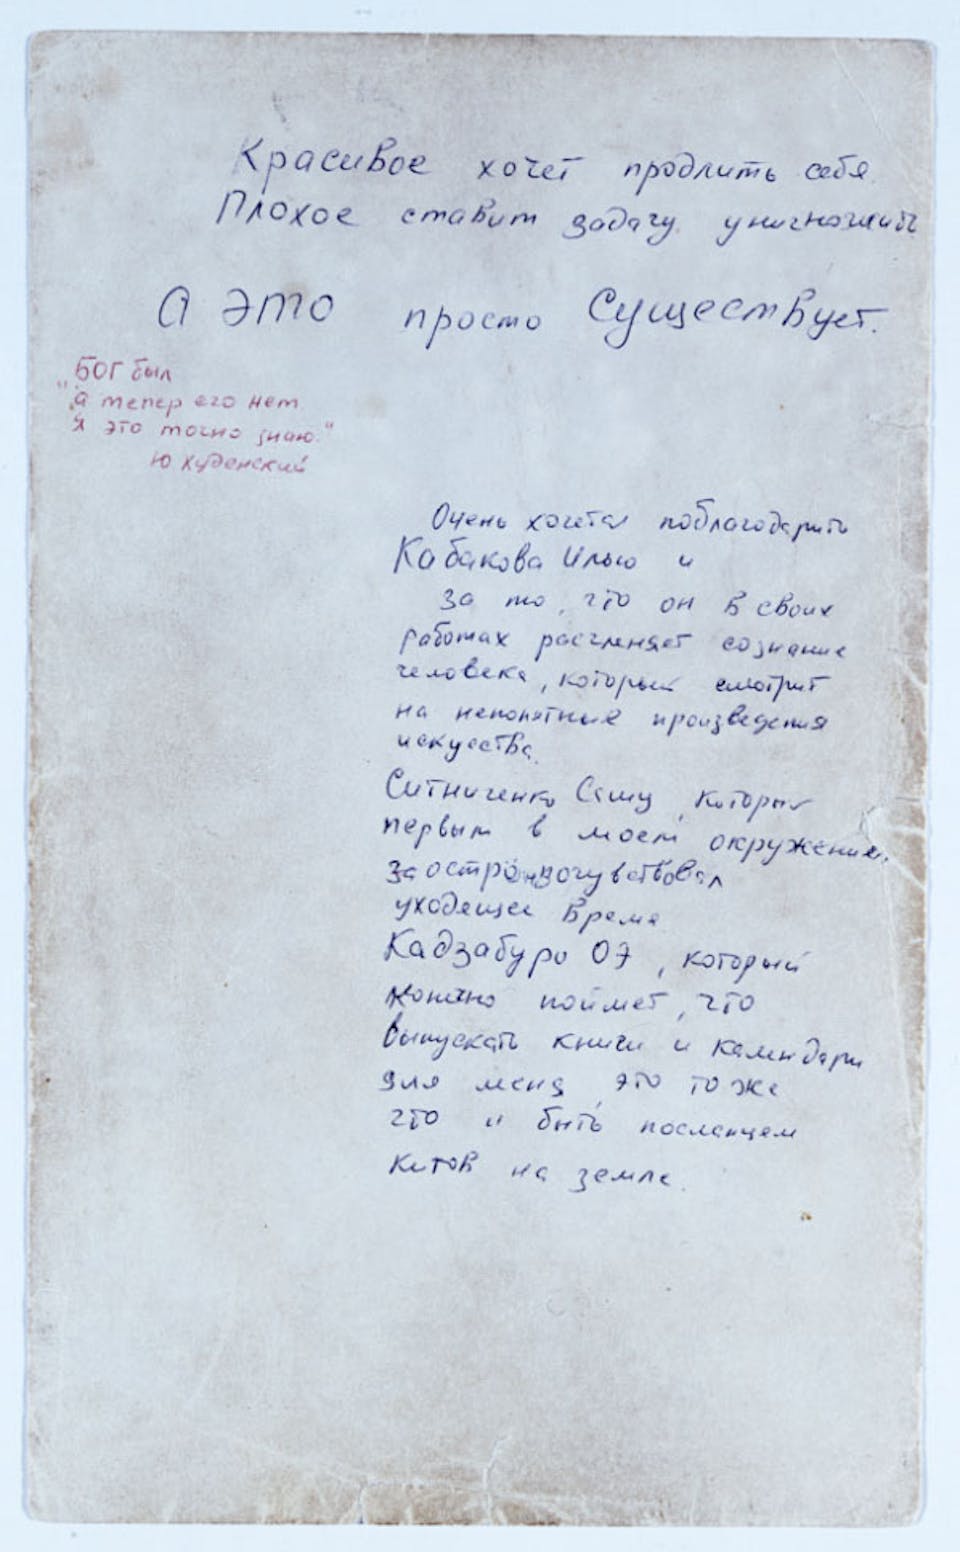 Красивое хочет продлить себя.
Плохое ставит задачу уничтожить
А это просто Существует.
"БОГ был
а тепер его нет
Я это точно знаю."
Ю Худенский
Очень хочется поблагодарить
Кабакова Илью и
за то, что он в своих
работах расчленяет сознание
человека, который смотрит
на непонятные произведения
искусства.
Ситниченко Сашу, который
первым в моем окружении
заостро
уходящее Время
Кадзабуро ОЭ, который
конечно поймет, что
выпускать книги и календари
для меня, это то же
что и быть посланцем
китов на земле.